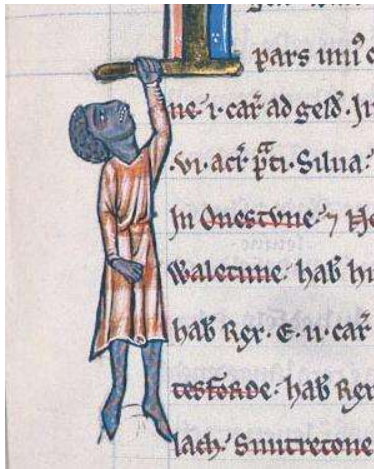 pars uni⁹ c
ne·i·car̃ ad geld̃. In
.vi. acr̃ p̃ti. Silua.
In Ouestune. ⁊ He
Waletune. hab̃ hu
hab̃ Rex. E. u. car̃
tesforde. hab̃ Rex
lach. Suutretone